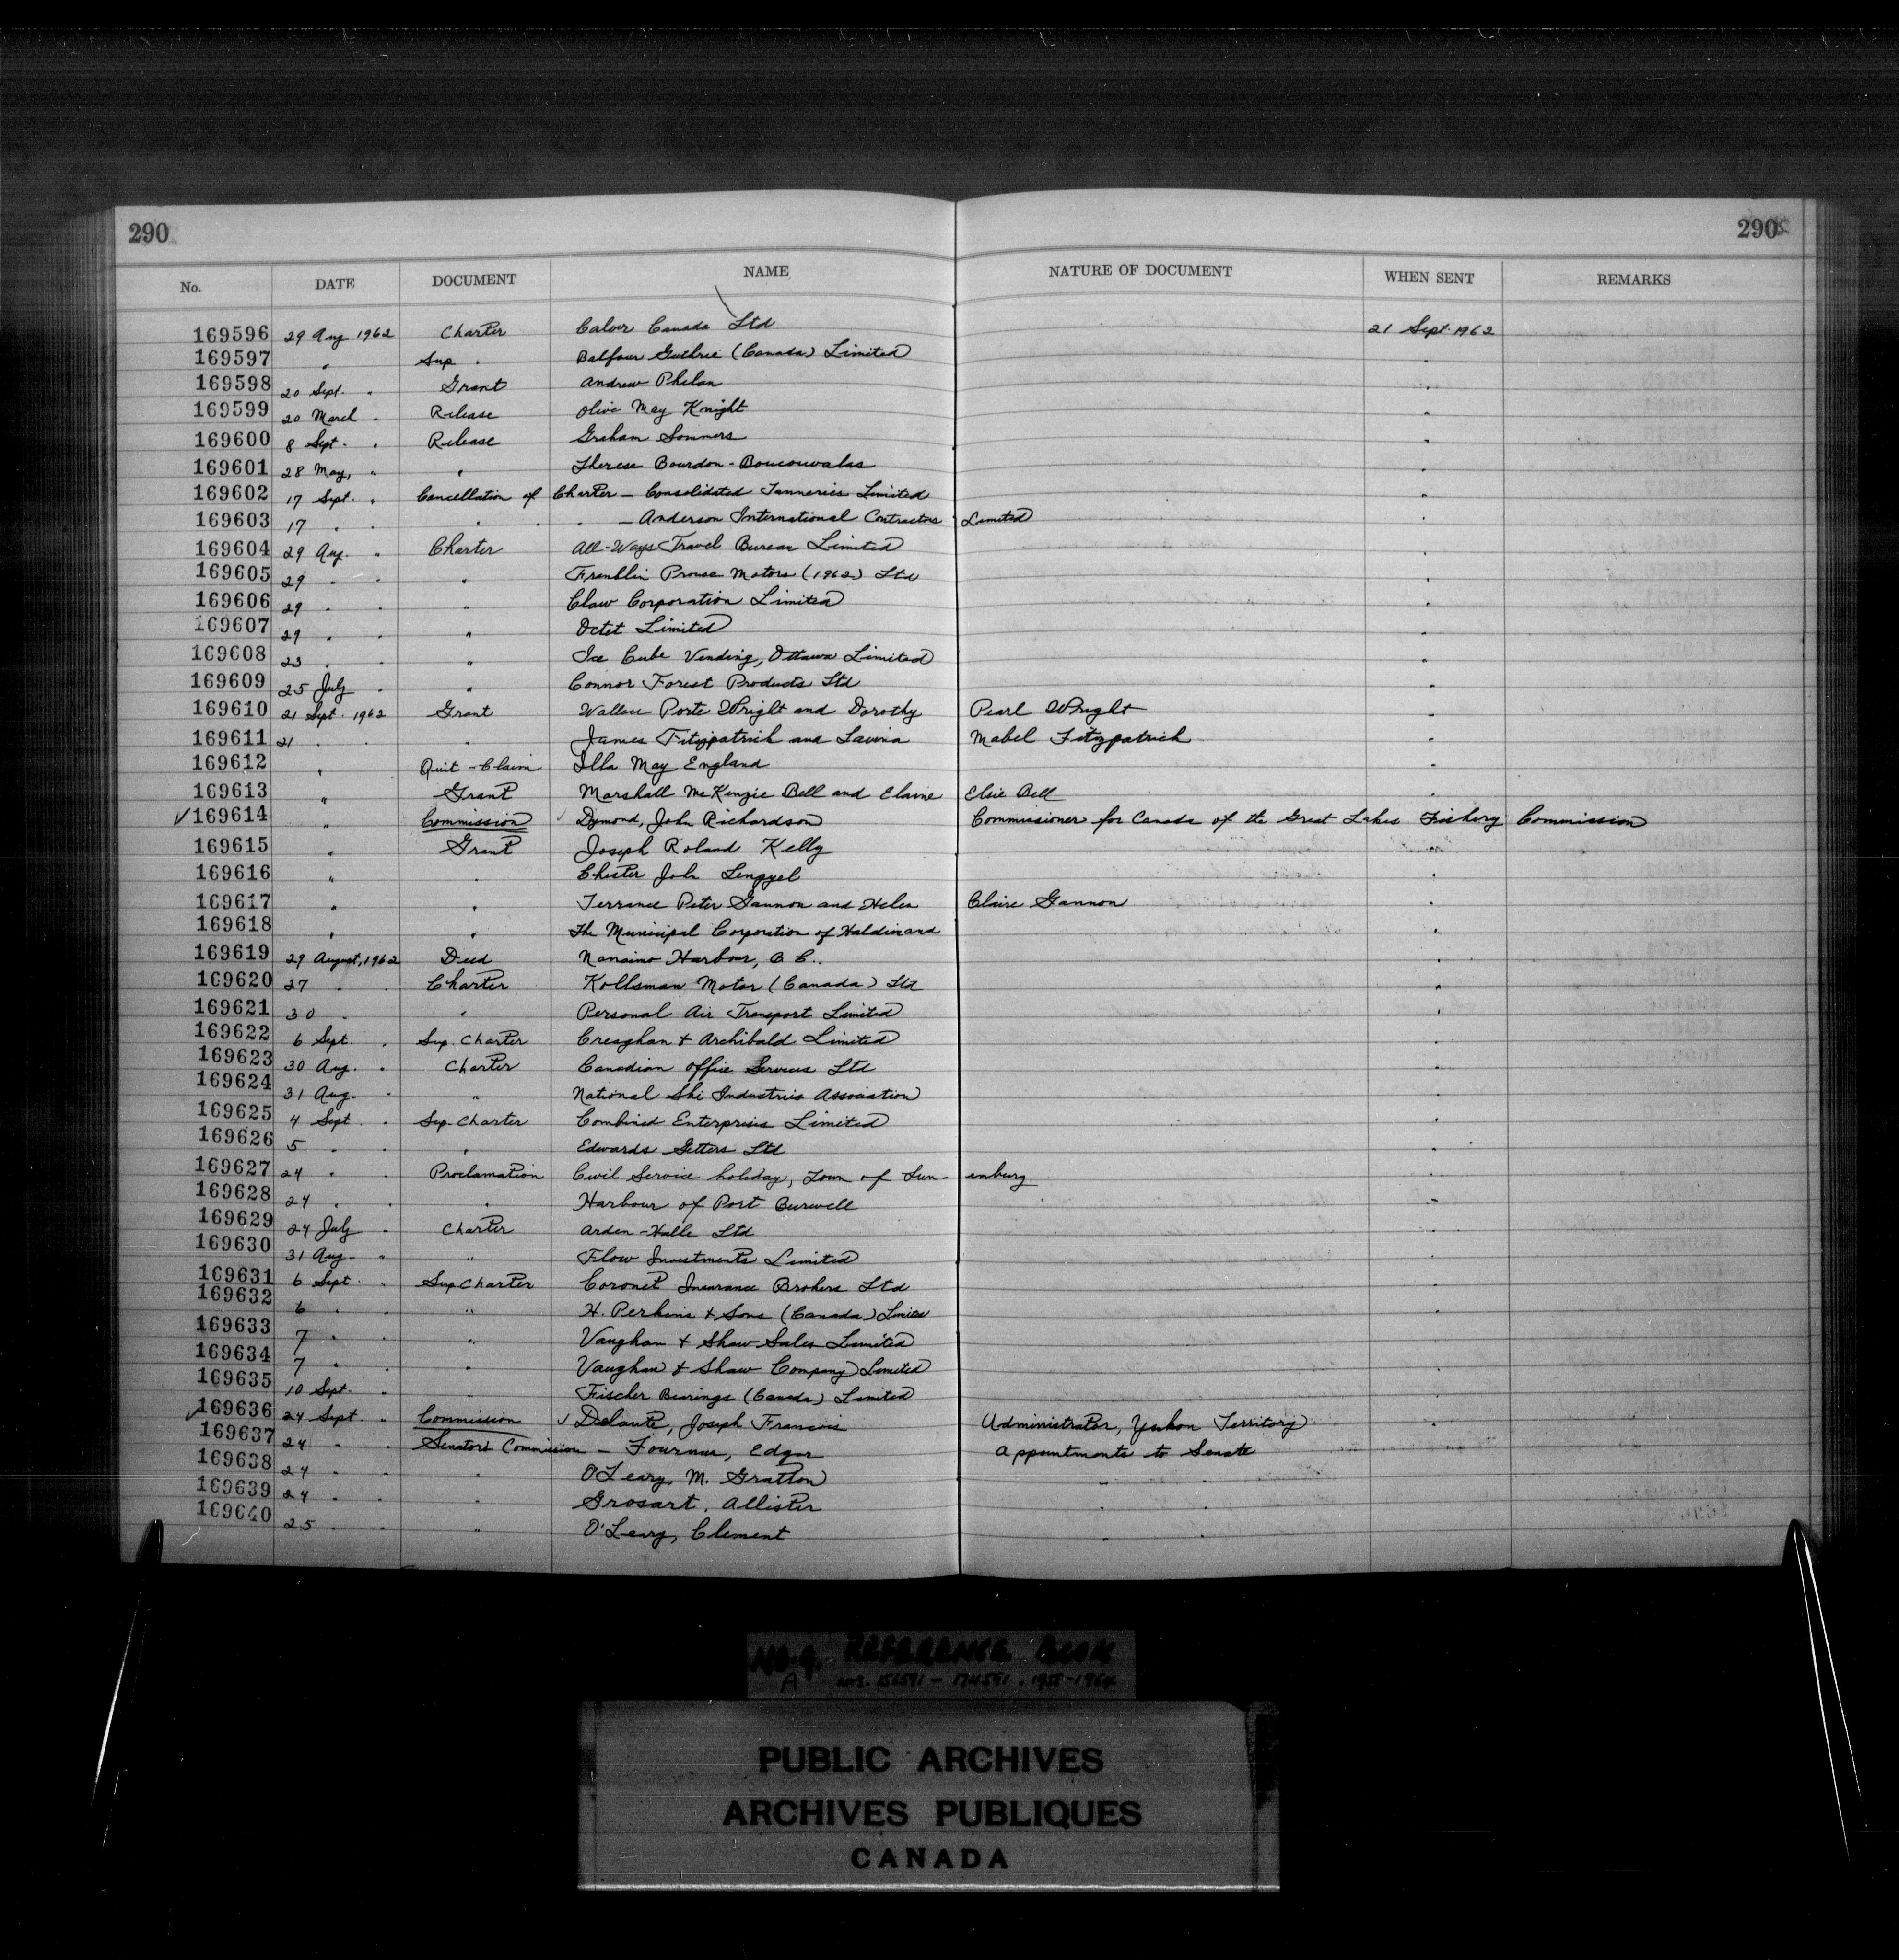 290 290
No. DATE DOCUMENT NAME NATURE OF DOCUMENT WHEN SENT REMARKS
169596 29 Aug 1962 Charter Calver Canada Ltd 21 Sept. 1962
169597 " Sup. Balfour Guthrie (Canada) Limited "
169598 20 Sept. " Grant Andrew Phelan "
169599 20 March " Release Olive May Knight "
169600 8 Sept. " Release Graham Sommers "
169601 28 May, " " Therese Bourdon-Boucouvalas "
169602 17 Sept. " Cancellation of Charter - Consolidated Tanneries Limited "
169603 17 " " " " " - Anderson International Contractors Limited "
169604 29 Aug. " Charter All-Ways Travel Bureau Limited "
169605 29 " " " Franklin Prouse Motors (1962) Ltd "
169606 29 " " " Claw Corporation Limited "
169607 29 " " " Octet Limited "
169608 23 " " " Ice Cube Vending, Ottawa Limited "
169609 25 July " " Connor Forest Products Ltd "
169610 21 Sept. 1962 Grant Wallace Porte Wright and Dorothy Pearl Wright "
169611 21 " " " James Fitzpatrick and Lavina Mabel Fitzpatrick "
169612 " Quit-Claim Illa May England "
169613 " Grant Marshall McKenzie Bell and Elaine Elsie Bell "
✓ 169614 " Commission ✓ Dymond, John Richardson Commissioner for Canada of the Great Lakes Fishery Commission
169615 " Grant Joseph Roland Kelly "
169616 " " Chester John Lengyel "
169617 " " Terrance Peter Gannon and Helen Claire Gannon "
169618 " " The Municipal Corporation of Haldimand "
169619 29 August, 1962 Deed Nanaimo Harbour, B.C.. "
169620 27 " " Charter Kollsman Motor (Canada) Ltd "
169621 30 " " Personal Air Transport Limited "
169622 6 Sept. " Sup. Charter Creaghan & Archibald Limited "
169623 30 Aug. " Charter Canadian Office Services Ltd "
169624 31 Aug. " " National Ski Industries Association "
169625 4 Sept " Sup. Charter Combined Enterprises Limited "
169626 5 " " " Edwards Ltd "
169627 24 " " Proclamation Civil Service holiday, Town of Lun-enburg "
169628 24 " " " Harbour of Port Burwell "
169629 24 July " Charter Arden-Halle Ltd "
169630 31 Aug. " " Flow Investments Limited "
169631 6 Sept. " Sup Charter Coronet Insurance Brokers Ltd "
169632 6 " " H. Perkins & Sons (Canada) Limited "
169633 7 " " " Vaughan & Shaw Sales Limited "
169634 7 " " " Vaughan & Shaw Company Limited "
169635 10 Sept. " " Fischer Bearings (Canada) Limited "
✓ 169636 24 Sept. " Commission ✓ Delaute, Joseph Francois Administrator, Yukon Territory "
169637 24 " " Senators Commission - Fournier, Edgar Appointments to Senate
169638 24 " " " O'Leary, M. Grattan " "
169639 24 " " " Grosart, Allister " "
169640 25 " " " O'Leary, Clement " "
No. 9. REFERENCE BOOK
A NOS. 156591 - 174591. 1958-1964
PUBLIC ARCHIVES
ARCHIVES PUBLIQUES
CANADA